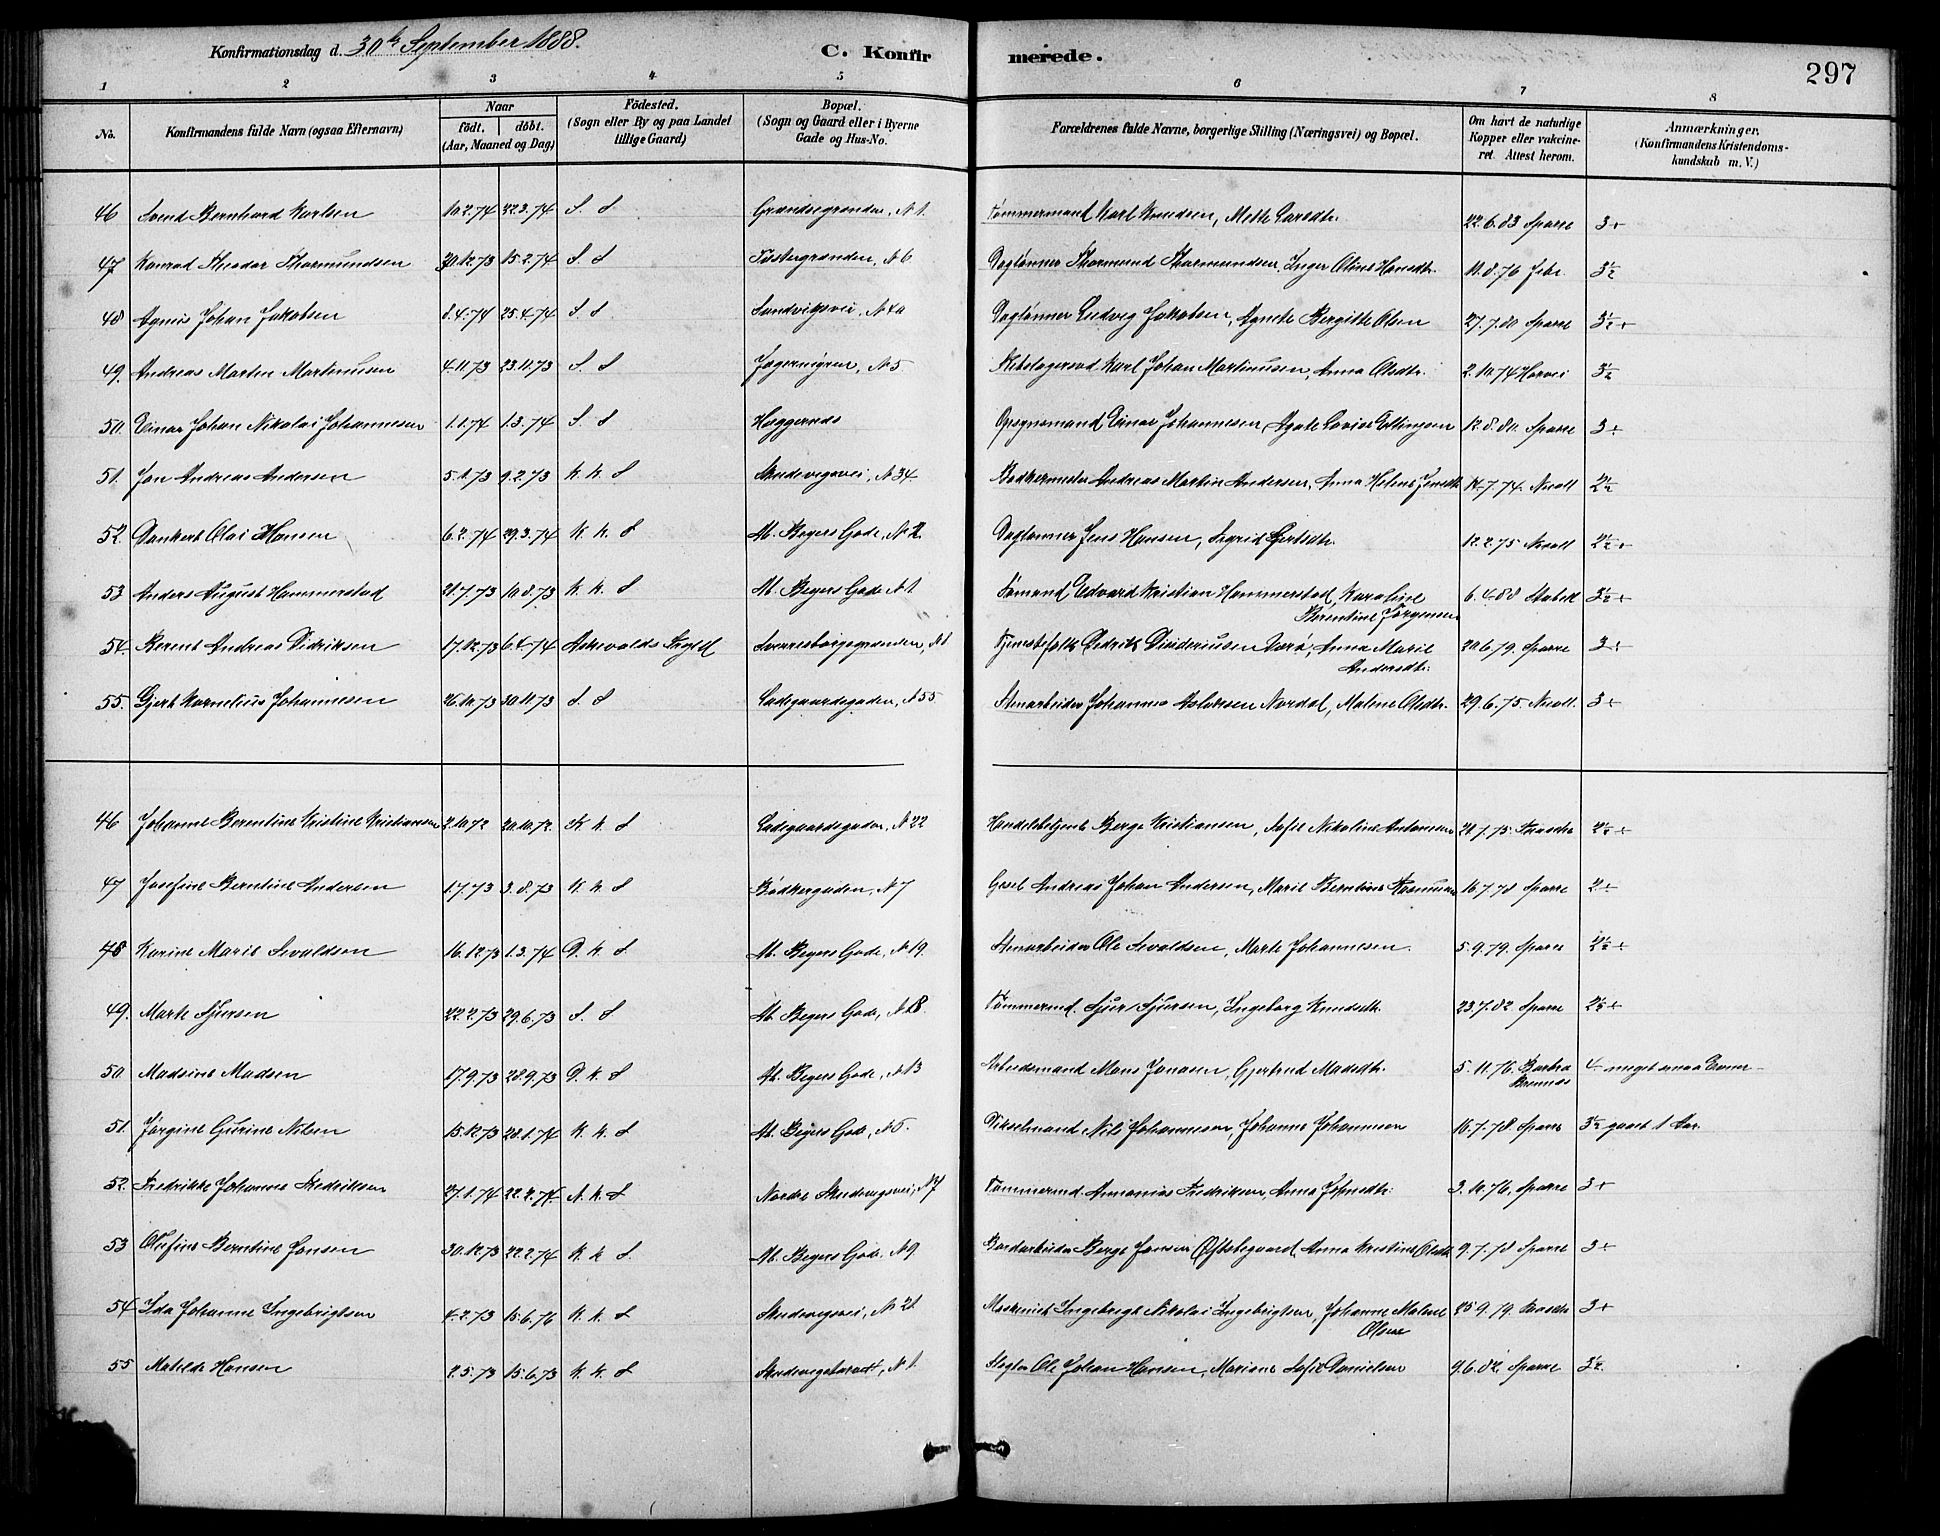 Konfirmationsdag d. 30te September 1888. C. Konfirmerede. 297
1 2 3 4 5 6 7 8
No. Konfirmandens fulde Navn (ogsaa Efternavn) Naar født. døbt. (Aar, Maaned og Dag) Födested. (Sogn eller By og paa Landet tillige Gaard) Bopæl. (Sogn og Gaard eller i Byerne Gade og Hus-No. Forældrenes fulde Navne, borgerlige Stilling (Næringsvei) og Bopæl. Om havt de naturlige Kopper eller vakcineret. Attest herom. Anmærkninger. (Konfirmandens Kristendomskundskab m. V.)
46 Svend Bernhard Karlsen 10.2.74 22.3.74 S. S Grændsegrenden, N 1. Tømmermand Karl Knudsen, Mette Larsdtr. 22.6.83 Sparre 3+
47 Konrad Theodor Thormundsen 30.12.73 15.2.74 S. S Tostergrenden, N 6 Daglønner Thormund Thormundsen, Inger Oline Hansdtr. 11.8.76 3½
48 Agnus Johan Jakobsen 8.4.74 25.4.74 S. S. Sandviksvei, N 40 Daglønner Ludvig Jakobsen, Agnete Bergitte Olsen 27.7.80 Sparre 3½+
49. Andreas Martin Martinusen 4.11.73 23.11.73 S. S N 5 Karl Johan Martinusen, Anna Olsdtr. 2.10.74 3½
50. Einar Johan Nikolai Johannesen 1.1.74 1.3.74 S. S Heggernes Opsynsmand Einar Johannesen, Agate Lovise Ellingsen 12.8.80. Sparre 3+
51. Jan Andreas Andersen 5.1.73 9.2.73 K. K. S Skudevigsvei, N 34 Bødkermester Andreas Martin Andersen, Anna Helene 14.7.74. Nicoll 2½
52. Dankert Olai Hansen 6.2.74 29.3.74 K. K. S Ab. Begers Gade, N 2. Daglønner Jens Hansen, Sigrid 12.2.75 Nicoll 2½+
53 Anders August Hammerstad 21.7.73 10.8.73 K. K. S Ab. Begers Gade N 1 Sømand Edvard Kristian Hammerstad, Karoline Berentine Jørgensen 6.4.88 3½+
54. Berent Andreas Didriksen 17.12.73 6.4.74 Askevolds Sogn Sverresborgsgrenden, N 1 Tjenestefolk Didrik Anna Marie Andersdtr. 20.6.79. Sparre 3+
55. Gjert Kornelius Johannesen 26.10.73 30.11.73 S. S Ladegaardsgaden, N 55 Stenarbeider Johannes Aslaksen Nordal, Malene Olsdtr. 29.6.75. Nicoll. 3+
46 Johanne Berentine Kristine Kristiansen 2.10.72 20.10.72. K K. S Ladegaardsgaden, N 22 Handelsbetjent Berge Kristiansen, Sofie Nikoline Antonsen 21.7.75. 2½+
47 Josefine Berntine Andersen 1.7.73 3.8.73 K. K. S Bødkergaden, N 7 Gesel Andreas Johan Andersen, Marie Berntine Rasmusen 16.7.78 Sparre 2+
48 Karine Marie Sivaldsen 16.12.73 1.3.74 D. K. S. Ab. Begers Gade, N 19. Stenarbeider Ole Sivaldsen, Marte Johannesen. 5.9.79. Sparre 2½+
49. Marte Sjursen 22.2.73 29.6.73 S. S Ab. Begers Gade, N 18. Tømmermd. Sjur Sjursen, Ingeborg Knudsdtr. 23.7.82. Sparre 2½+
50. Madsine Madsen 17.9.73 28.9.73 D. K. S Ab. Begers Gade, N 13 Arbeidsmand Mons Jonasen, Gjertrud Madsdtr. 5.11.76. Barbra 4 meget smaa Evner
51. Jørgine Gurine Nilsen 15.12.73 28.1.74 K. K. S Ab. Begers Gade, N 5. Nils Johannesen, Johanne Johannesen 16.7.78. Sparre 3½ gaaet 1 Aar.
52. Fredrikke Johanne Fredriksen 27.1.74 22.2.74. N. K. S Nordre Skudevigsvei, N 7 Tømmermd. Annanias Fredriksen, Anna Johnsdtr. 3.10.76. Sparre 3+
53 Olufine Berntine Jansen 30.12.73 22.2.74 K. K S. Ab. Begers Gade, N 9 Berge Jansen Øfstegaard, Anna Kristine Olsdtr. 9.7.78 Sparre 3+
54 Ida Johanne Ingebrigtsen 4.2.73 15.6.76 K. K. S Skudevigsvei, N 21 Maskinist Ingebrigt Nikolai Ingebrigtsen, Johanne Malene Olsen 25.9.79. 3+
55 Matilde Hansen 2.5.73 15.6.73 K. K. S N 1. Slagter Ole Johan Hansen, Mariane Sofie Danielsen 9.6.82. Sparre 3½.